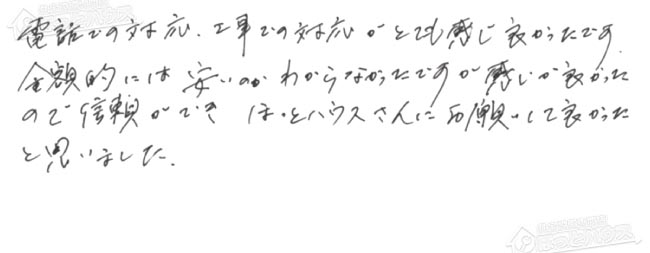 電話での対応、工事での対応がとても感じ良かったです。
金額的には安いのかわからなかったですが感じが良かった
ので信頼ができ ほっとハウスさんにお願いして良かった
と思いました。
ほっとハウス